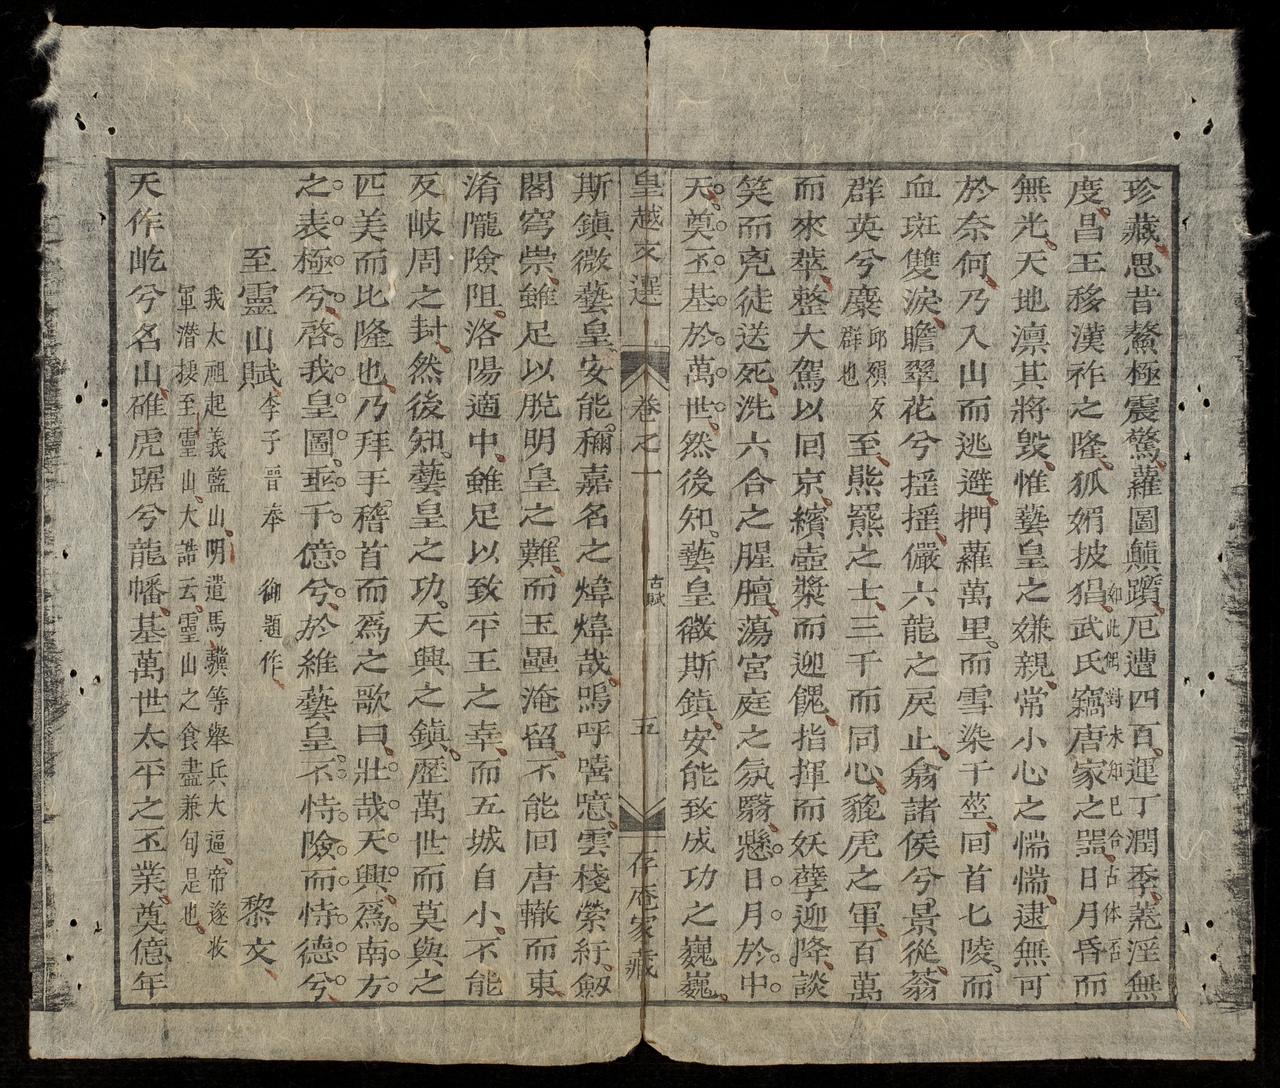 珍藏思昔鰲極震驚蘿圖顛躓厄遭四百運丁潤季蒸淫無
度昌王移漢祚之隆狐媚披猖武氏竊唐家之噐日月昏而
如此偶對木知已合古体否
無光天地凛其將毁惟藝皇之嫌親常小心之惴惴逮無可
於奈何乃入山而逃遯捫蘿萬里而雪染千莖囘首七陵而
血斑雙淚瞻翠花兮摇摇儼六龍之戾止翕諸侯兮景從蓊
群英兮麋邱殞反群也至熊羆之士三千而同心貔虎之軍百萬
而來萃整大駕以回京繽壺漿而迎僊指揮而妖孽迎降談
笑而兇徒送死洗六合之腥膻蕩宮庭之氛翳懸日月於中
天奠丕基於萬世然後知藝皇微斯鎮安能致成功之巍巍
皇越文選 卷之一 古賦 五 存庵家藏
斯鎮微藝皇安能穪嘉名之煒煒哉嗚呼嘻噫雲棧縈紆劔
閣穹崇雖足以脫明皇之難而玉壘淹留不能回唐轍而東
淆隴險阻洛陽適中雖足以致平王之幸而五城自小不能
反岐周之封然後知藝皇之功天興之鎮歷萬世而莫與之
匹美而比隆也乃拜手稽首而爲之歌曰壯哉天興爲南方
之表極兮啓我皇圖垂千億兮於維藝皇不恃險而恃德兮
至靈山賦李子晋奉 御題作 黎文
我太祖起義藍山明遣馬騏等舉兵大逼帝遂收
軍潜捿至靈山大誥云靈山之食盡兼旬是也
天作屹兮名山碓虎踞兮龍幡基萬世太平之丕業奠億年